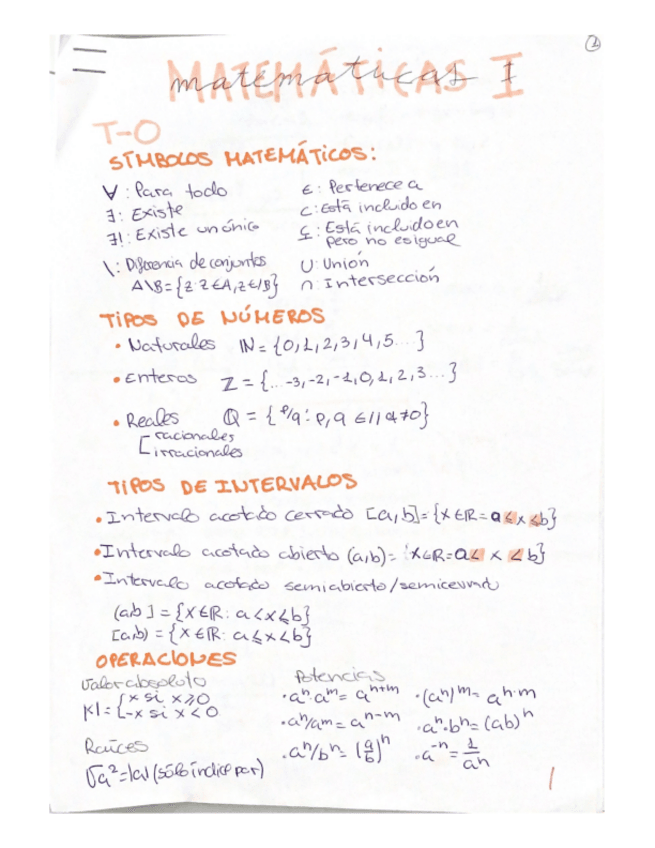 1
MATEMÁTICAS I
matemáticas I
T-0
SÍMBOLOS MATEMÁTICOS:
∀: Para todo
∃: Existe
∃!: Existe un único
\: Diferencia de conjuntos
A\B={z:z∈A,z∉B}
∈: Pertenece a
⊂: Está incluido en
⊊: Está incluido en
pero no es igual
∪: Unión
∩: Intersección
TIPOS DE NÚMEROS
• Naturales ℕ={0,1,2,3,4,5...}
• Enteros ℤ={...-3,-2,-1,0,1,2,3...}
• Reales ℚ={p/q: p,q ∈ // q≠0}
racionales
irracionales
TIPOS DE INTERVALOS
• Intervalo acotado cerrado [a,b]={x∈ℝ=a≤x≤b}
• Intervalo acotado abierto (a,b)={x∈ℝ=a< x <b}
• Intervalo acotado semiabierto/semicerrado
(a,b]={x∈ℝ: a<x≤b}
[a,b)={x∈ℝ: a≤x<b}
OPERACIONES
Valor absoluto
|x|={x si x≥0
-x si x<0
Raíces
√a²=|a| (sólo índice par)
Potencias
• aⁿ·aᵐ= aⁿ⁺ᵐ
• aⁿ/aᵐ= aⁿ⁻ᵐ
• aⁿ/bⁿ= (a/b)ⁿ
• (aⁿ)ᵐ= aⁿ·ᵐ
• aⁿ·bⁿ= (ab)ⁿ
• a⁻ⁿ= 1/aⁿ
1